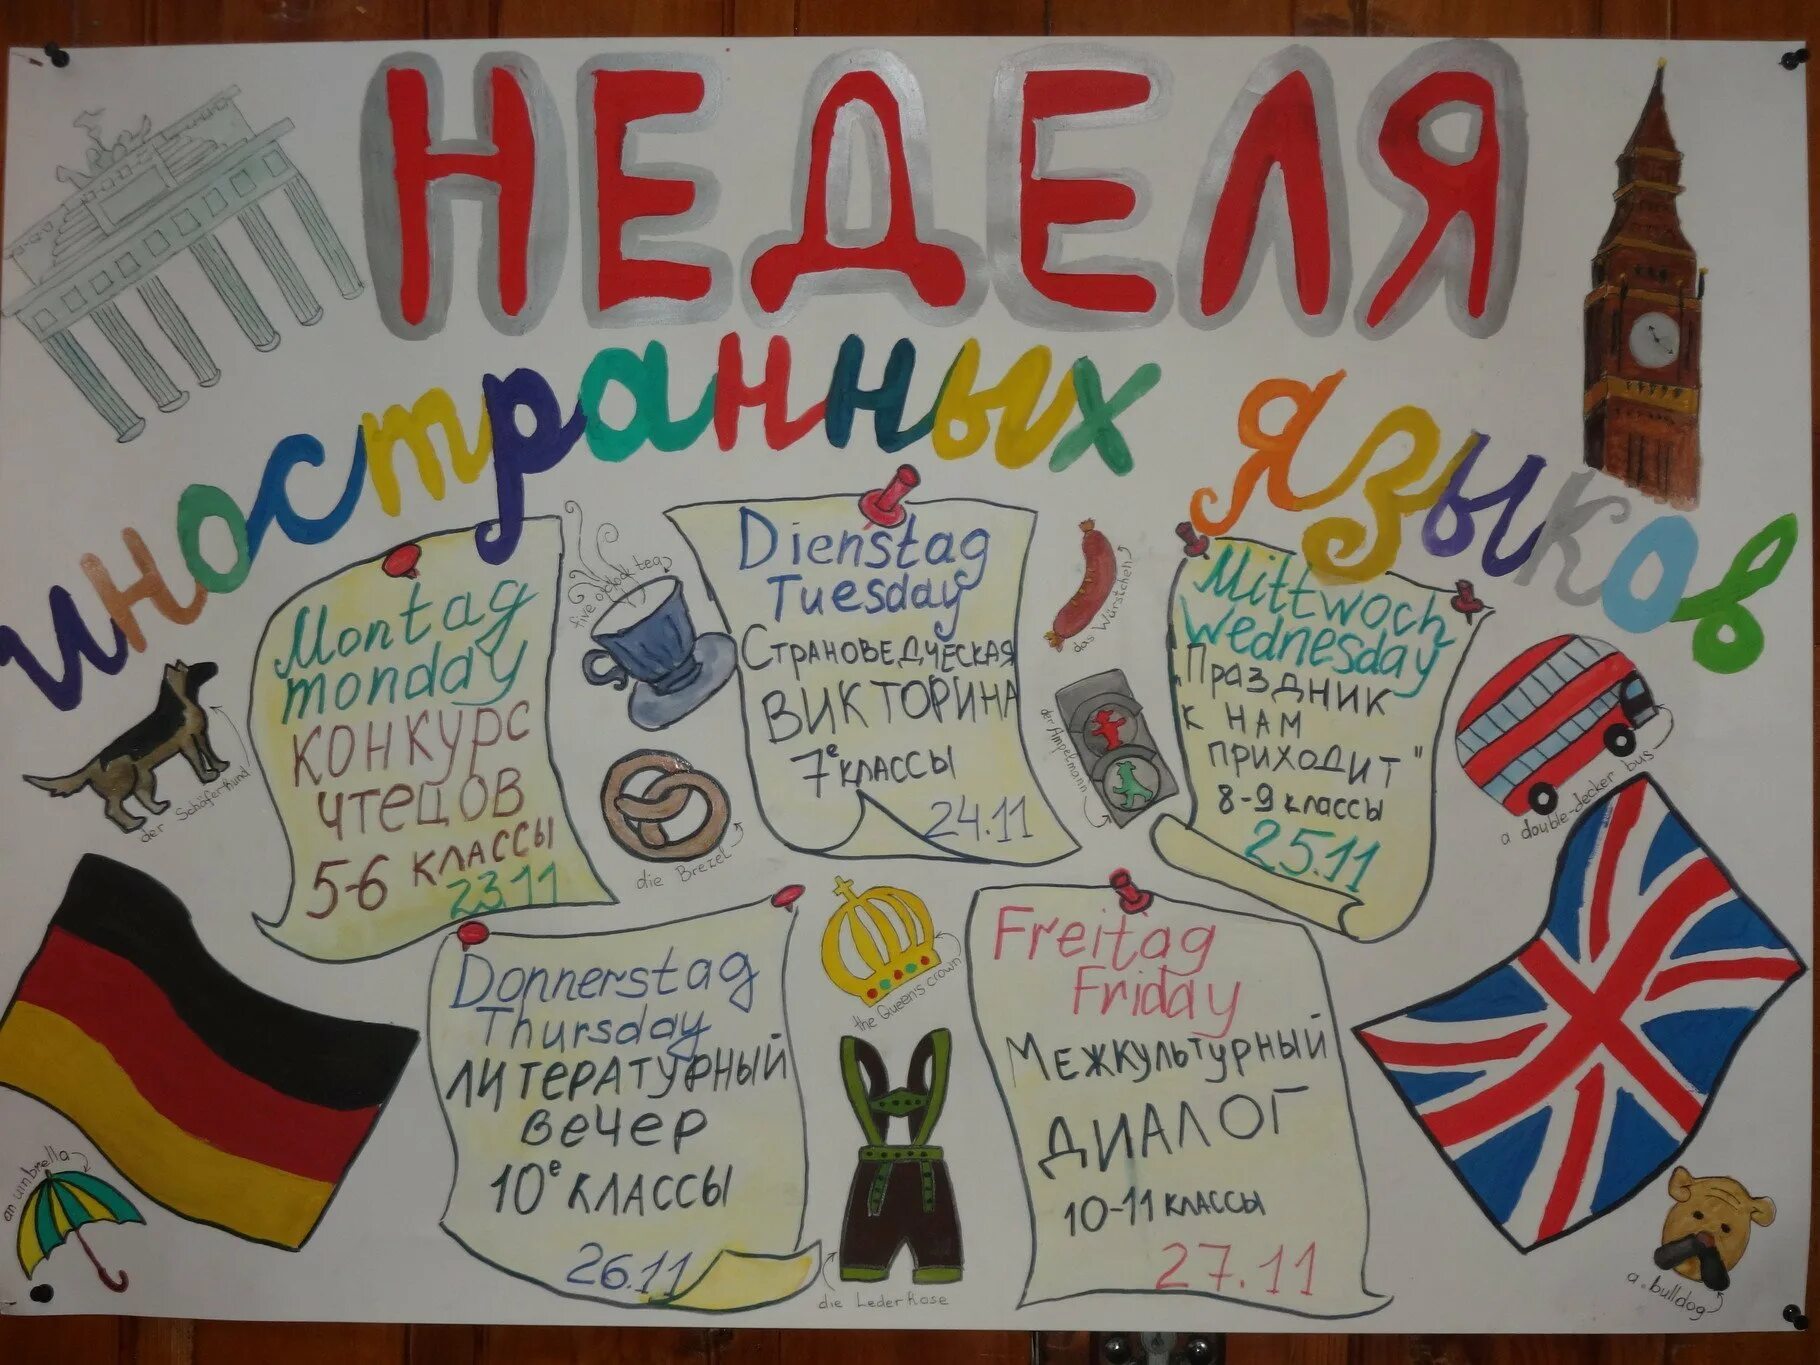 НЕДЕЛЯ
иностранных языков
Montag
monday
КОНКУРС
ЧТЕЦОВ
5-6 КЛАССЫ
23.11
five o'clock tea
Dienstag
Tuesday
СТРАНОВЕДЧЕСКАЯ
ВИКТОРИНА
7е КЛАССЫ
24.11
das Würstchen
Mittwoch
Wednesday
"Праздник
к нам
приходит"
8-9 классы
25.11
der Schäferhund
die Brezel
der Ampelmann
a double-decker bus
Donnerstag
Thursday
ЛИТЕРАТУРНЫЙ
Вечер
10е КЛАССЫ
26.11
the Queen's crown
Freitag
Friday
МЕЖКУЛЬТУРНЫЙ
ДИАЛОГ
10-11 КЛАССЫ
27.11
an umbrella
die LederHose
a bulldog